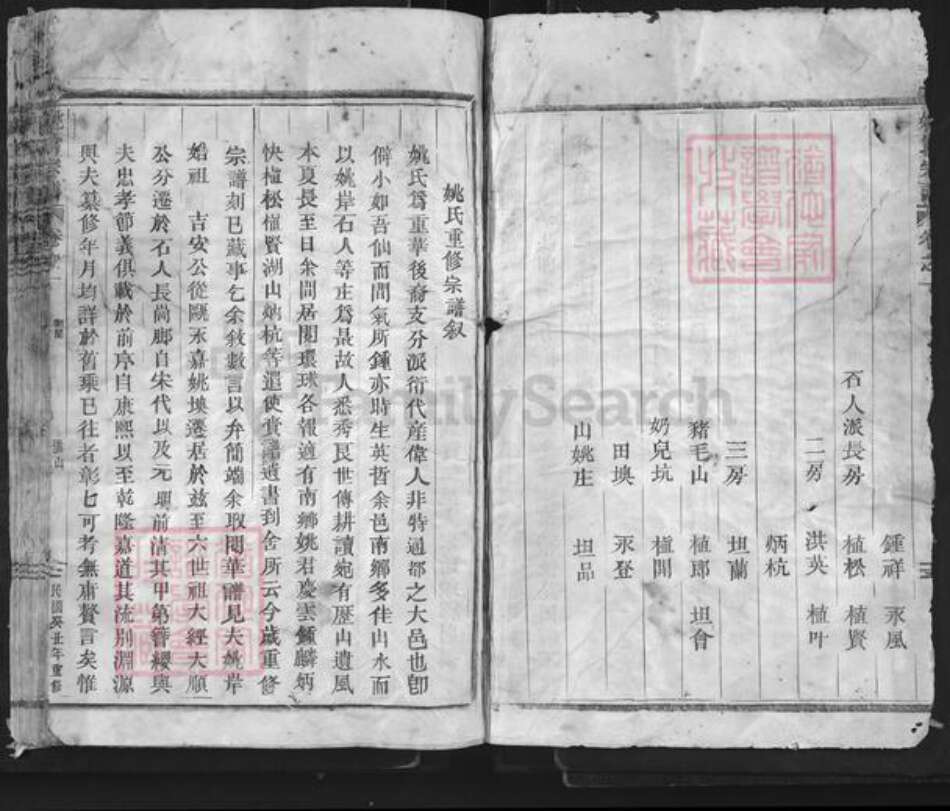 鍾祥 永風
石人派長房 植松 植賢
二房 洪英 植叶
炳杭
三房 坦蘭
豬毛山 植郎 坦會
奶兒坑 植開
田墺 永登
山姚庄 坦品
姚氏重修宗譜叙
姚氏爲重華後裔支分派衍代産偉人非特通都之大邑也卽
僻小如吾仙而間氣所鍾亦時生英哲余邑南鄉多佳山水而
以姚岸石人等庄爲最故人悉秀艮世傳耕讀綽有歴山遺風
本夏長至日余閒居閱環球各報適有南鄉姚君慶雲鍾麟炳
快植松植賢湖山炳杭等遣使賫譜遺書到舍所云今歲重修
宗譜刻已蕆事乞余敘數言以弁簡端余取閱華譜見夫姚岸
始祖 吉安公從甌永嘉姚墺遷居於兹至六世祖大經大順
公分遷於石人長尚鄉自宋代以及元明前清其甲第簪纓與
夫忠孝節義俱載於前序自康熙以至乾隆嘉道其流别淵源
與夫纂修年月均詳於舊乘已往者彰七可考無庸贅言矣惟
民國癸丑年重修
FamilySearch